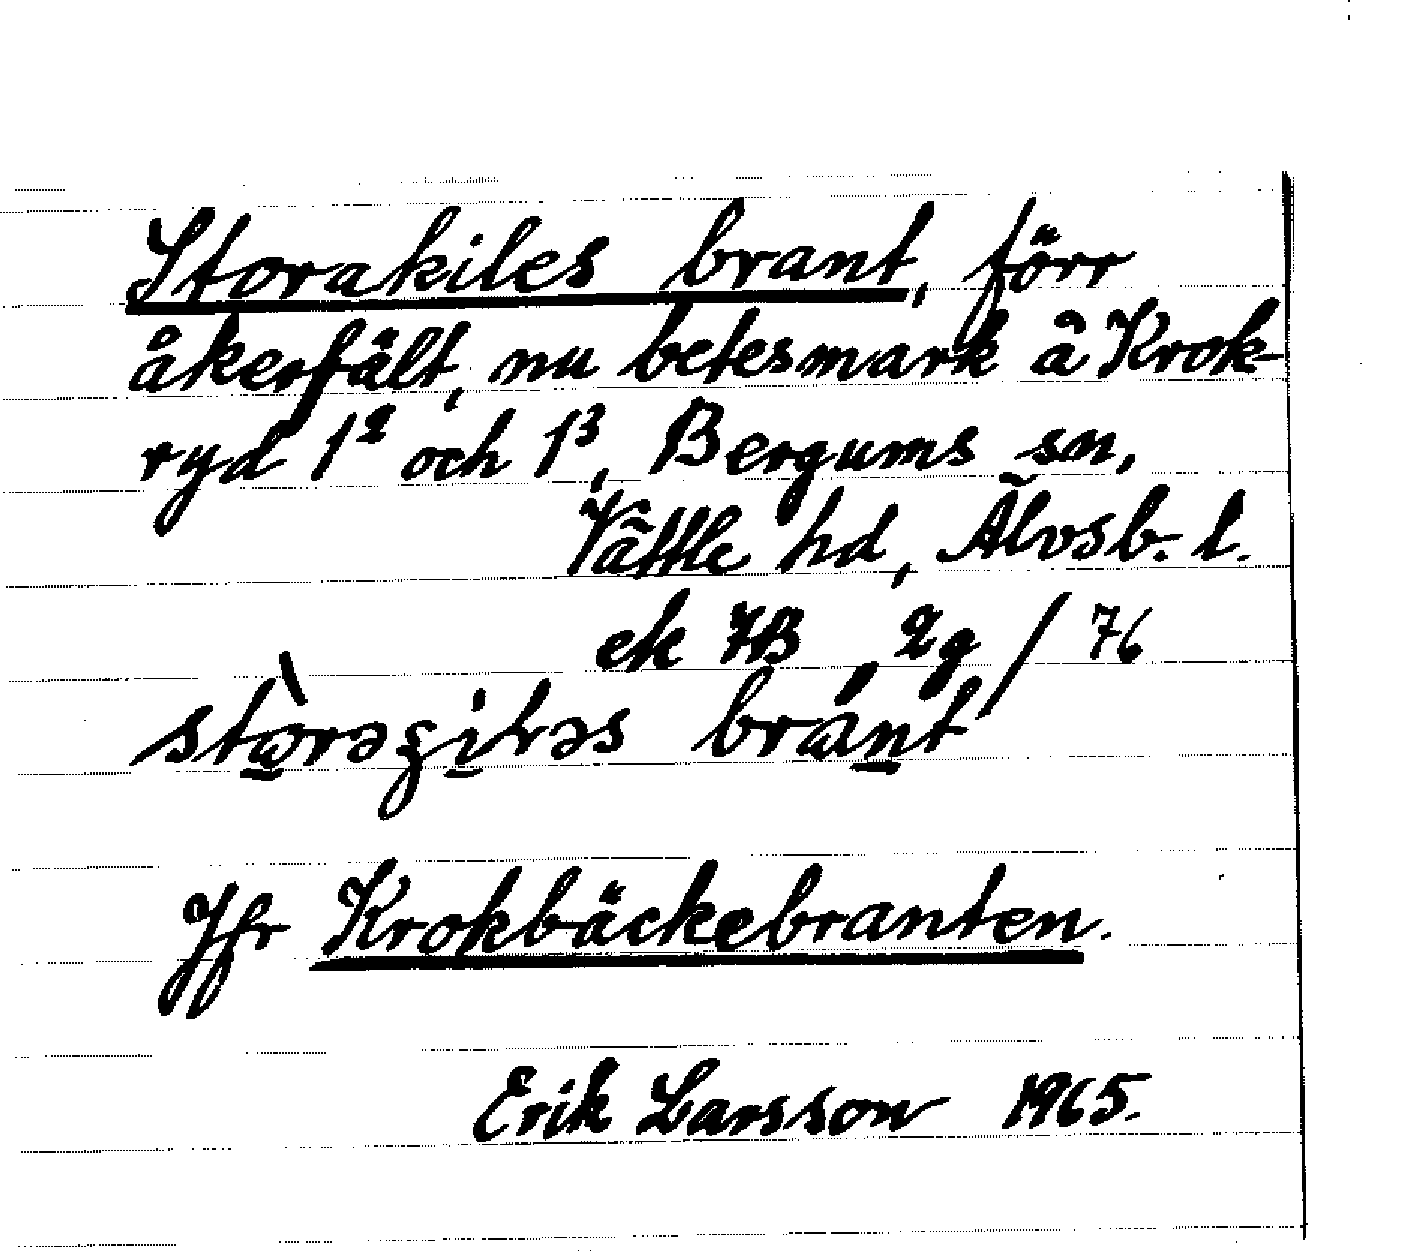 Storakiles brant, förr
åkerfält, nu betesmark å Krok-
ryd 1² och 1³, Bergums sn,
Vättle hd, Älvsb. l.
ek 7B 2g / 76
brant
Jfr Krokbäckebranten.
Erik Larsson 1965.